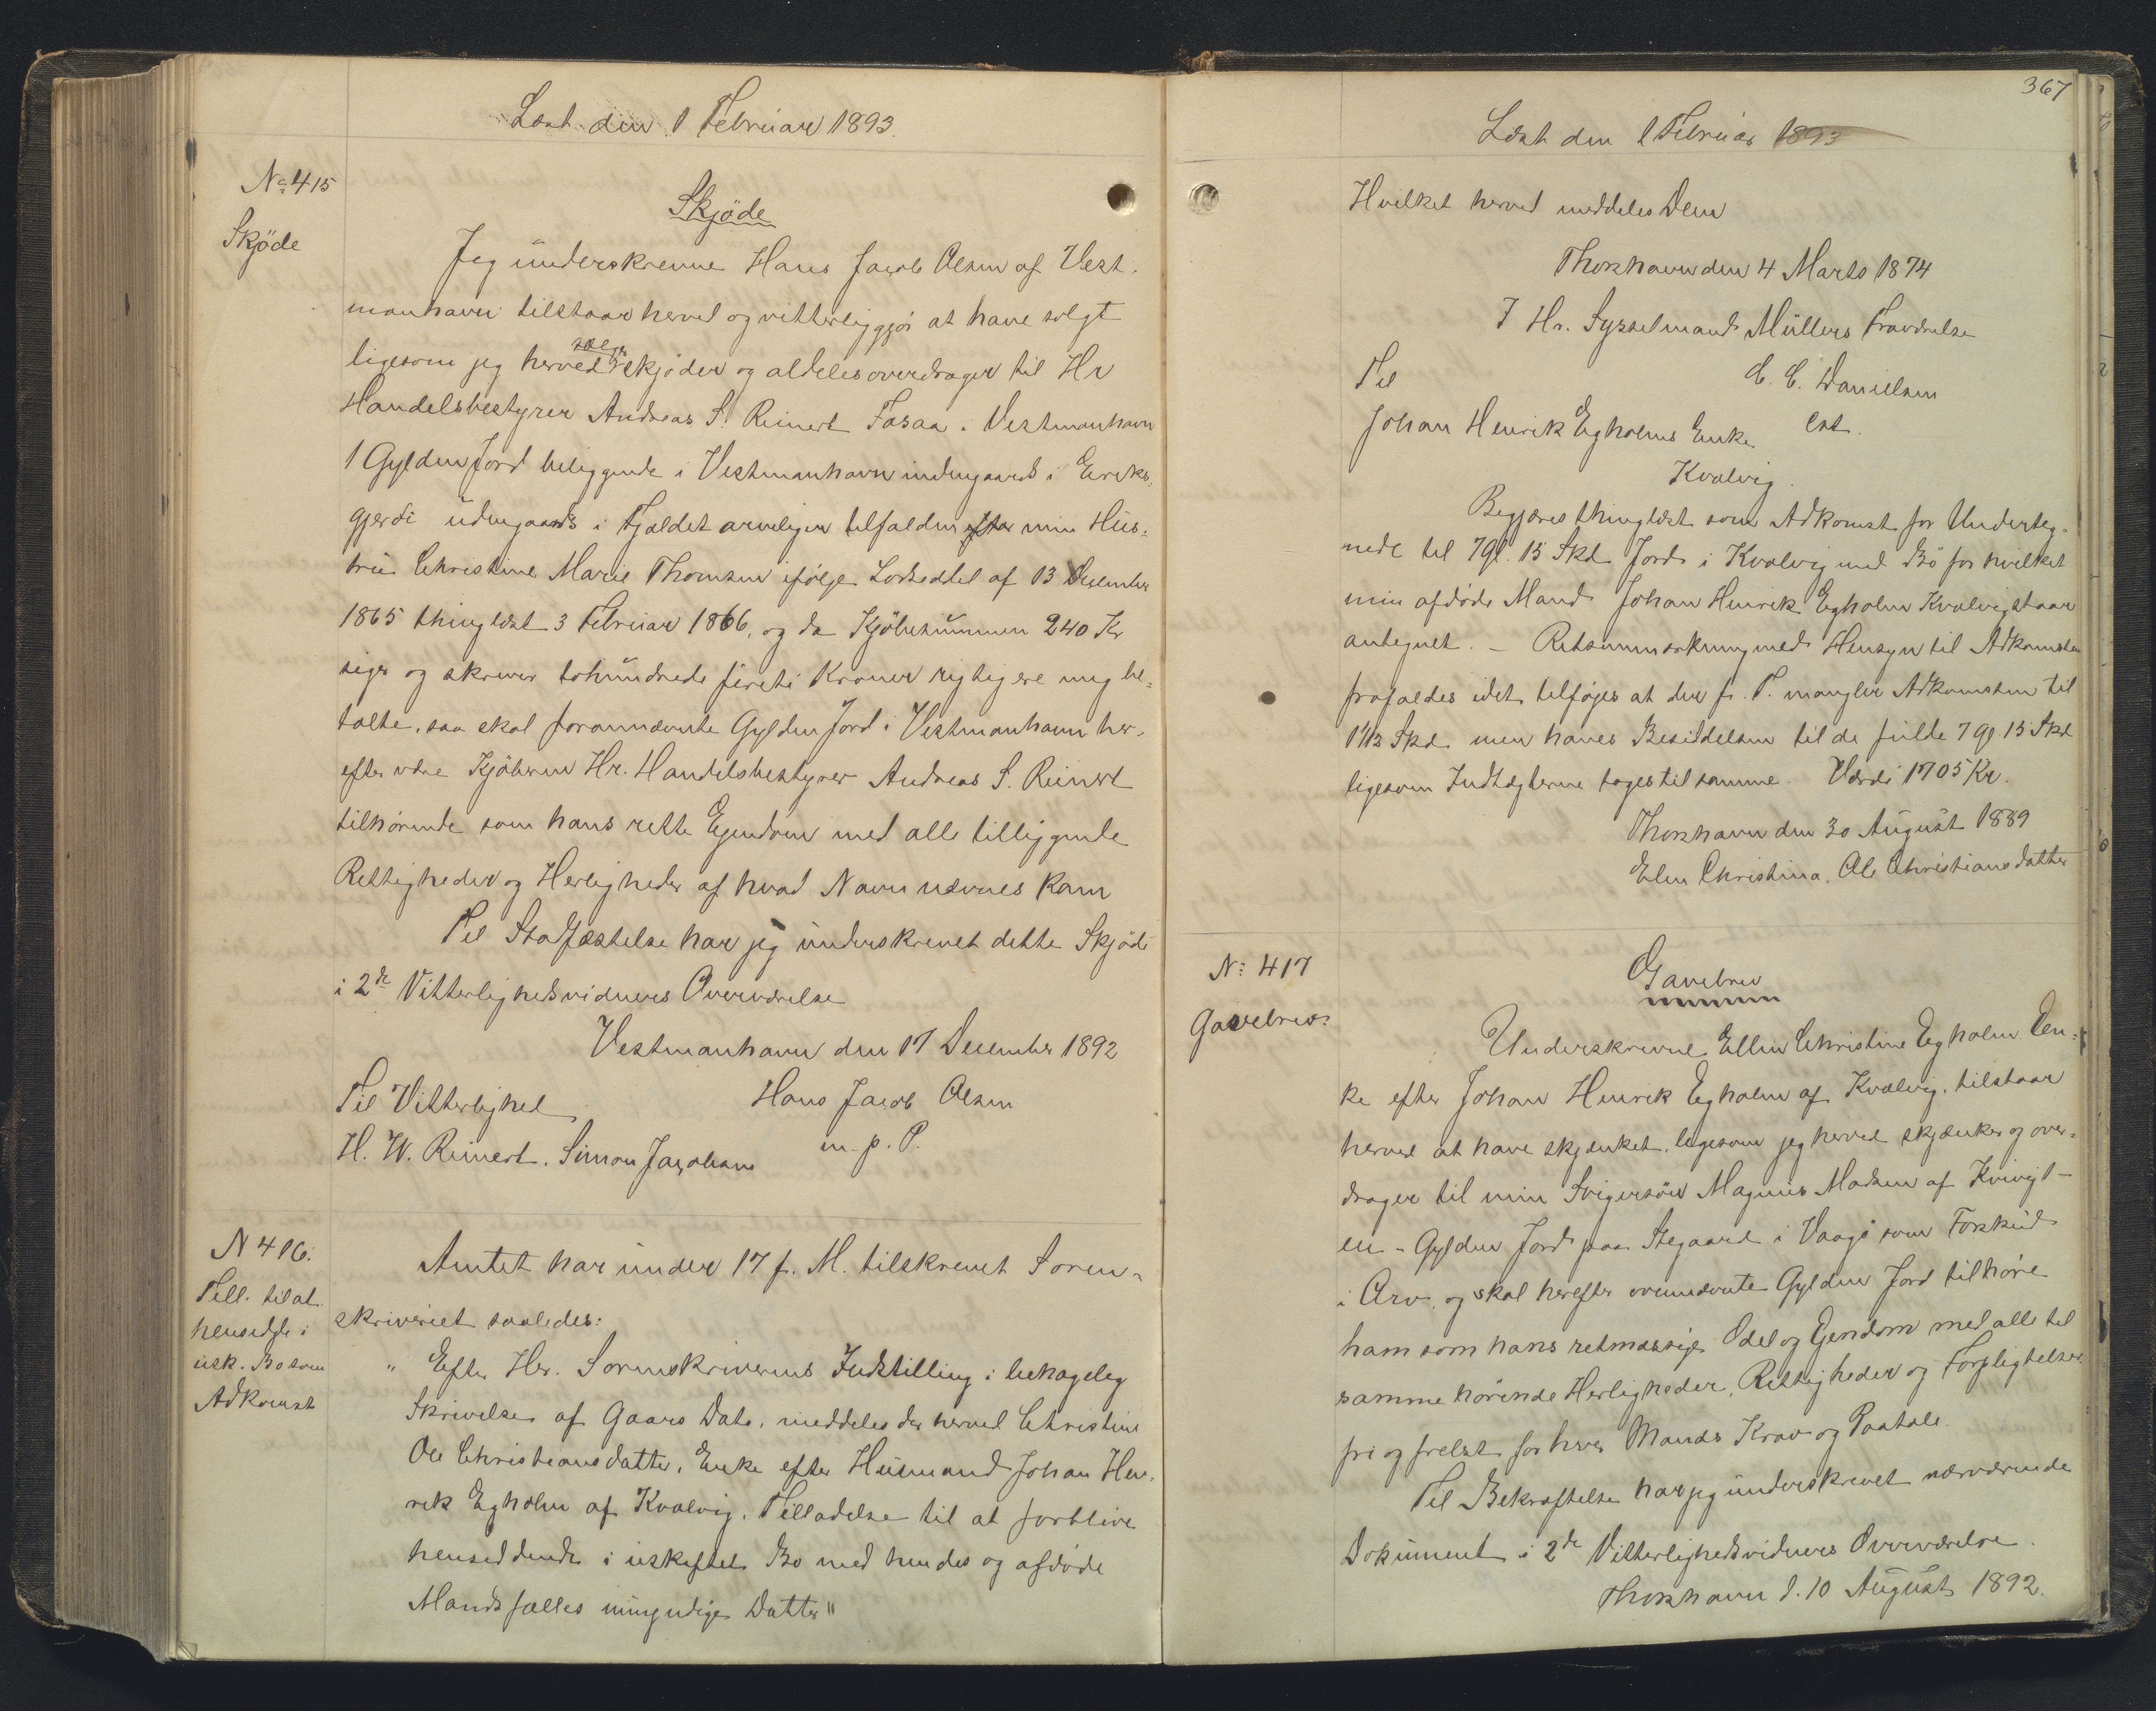 Læst den 1 Februar 1893.
No 415
Skjöde
Skjöde
Jeg underskrevne Hans Jacob Olsen af Vest-
manhavn tilstaar herved og vitterliggjör at have solgt
ligesom jeg herved sælger skjöder og aldeles overdrager til Hr
Handelsbestyrer Andreas S. Reinert Fasaa i Vestmanhavn
1 Gylden Jord beliggende i Vestmanhavn indengaards i Eireks-
gjerdi udengaards i Fjældet arveligen tilfalden efter min Hus-
tru Christine Marie Thomsen ifölge Lodsedtel af 13 December
1865 thinglæst 3 Februar 1866, og da Kjöbesummen 240 Kr
siger og skriver tohundrede fireti Kroner rigtig ere mig be-
talte, saa skal forannævnte Gylden Jord i Vestmanhavn her-
efter være Kjöberen Hr. Handelsbestyrer Andreas S. Reinert
tilhörende som hans rette Ejendom med alle tilliggende
Rettigheder og Herligheder af hvad Navn nævnes kan
Til Stadfæstelse har jeg underskrevet dette Skjöde
i 2de Vitterlighedsvidners Overværelse
Vestmanhavn den 17 December 1892
Til Vitterlighed Hans Jacob Olsen
H. W. Reinert. Simon Jacobsen m. p. P.
N 416.
Till. til at
hensidde i
usk. Bo som
Adkomst
Amtet har under 17 f. M. tilskrevet Soren-
skriveriet saaledes:
" Efter Hr. Sorenskriverens Indstilling i behagelig
Skrivelse af Gaars Dato, meddeles der herved Christine
Ole Christiansdatter, Enke efter Husmand Johan Hen-
rik Egholm af Kvalvig, Tilladelse til at forblive
hensiddende i uskiftet Bo med hendes og afdöde
Mands fælles umyndige Datter"
367
Læst den 1 Februar 1893
Hvilket herved meddeles Dem
Thorshavn den 4 Marts 1874
I Hr. Sysselmand Müllers Fraværelse
Til C. C. Danielsen
Johan Henrik Egholms Enke cst.
Kvalvig.
Begjæres thinglæst som Adkomst for Underteg-
nede til 7 Gl. 15 Skd Jord i Kvalvig med Bö for hvilket
min afdöde Mand Johan Henrik Egholm Kvalvig staar
antegnet. – Retsanmærkning med Hensyn til Adkomsten
frafaldes idet tilföjes at der f. T. mangler Adkomsten til
1 1/12 Skd. men haves Besiddelsen til de fulde 7 gl 15 Skd
ligesom Indtægterne tages til samme. Værdi 1705 Kr.
Thorshavn den 30 August 1889
Elen Christina, Ole Christiansdatter
No 417
Gavebrev
Gavebrev
Underskrevne Ellen Christine Egholm En-
ke efter Johan Henrik Egholm af Kvalvig, tilstaar
herved at have skjænket, ligesom jeg herved skjænker og over-
drager til min Svigersön Magnus Madsen af Kvivigt –
en – Gylden Jord paa Stegaard i Vaagö som Forskud
i Arv, og skal herefter ovennævnte Gylden Jord tilhöre
ham som hans retmæssige Odel og Ejendom med alle til
samme hörende Herligheder, Rettigheder og Forpligtelser
fri og frelst for hver Mands Krav og Paatale.
Til Bekræftelse har jeg underskrevet nærværende
Dokument i 2de Vitterlighedsvidners Overværelse.
Thorshavn d. 10 August 1892.